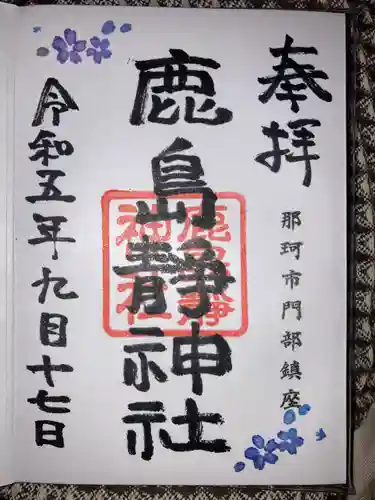 奉拝
那珂市門部鎮座
鹿島静神社
鹿島静神社
令和五年九月十七日